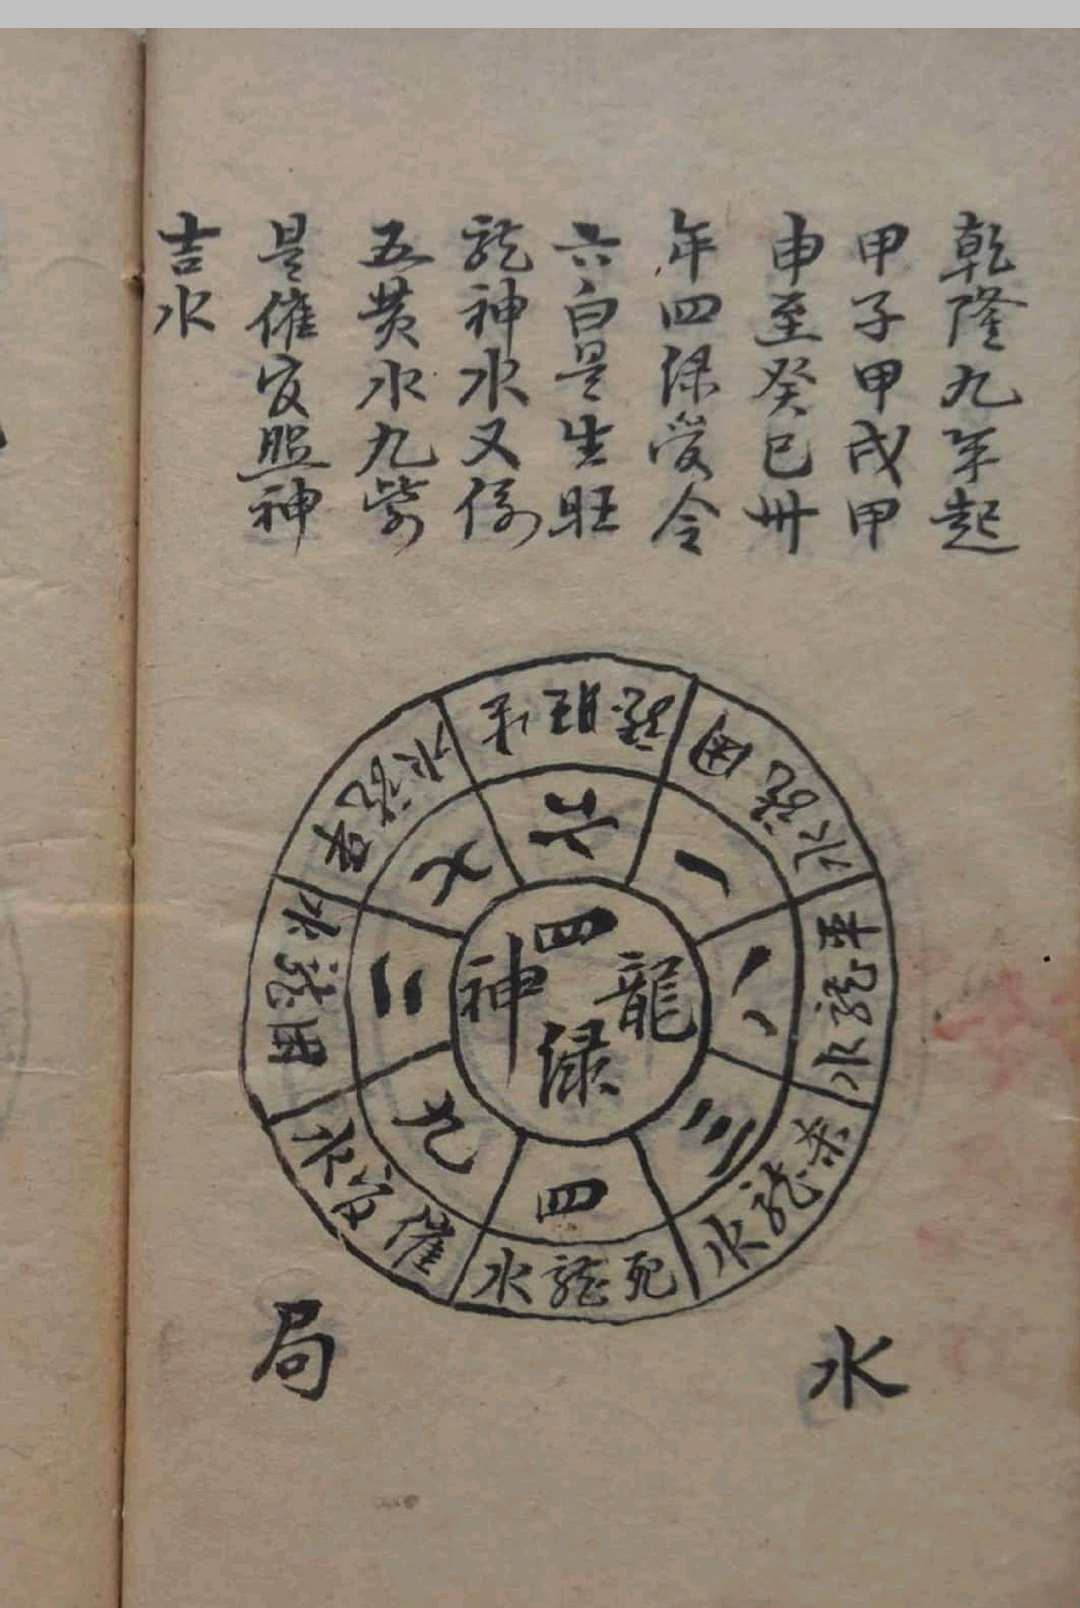 乾隆九年起
甲子甲戌甲
申至癸巳卅
年四绿受令
六白是生旺
龍神水又係
五黄水九紫
是催官照神
吉水
龍神
四绿
六
一
八
三
四
九
二
七
旺
囚龍水
平龍水
杀龍水
死龍水
催官水
囚龍水
龍水
水局